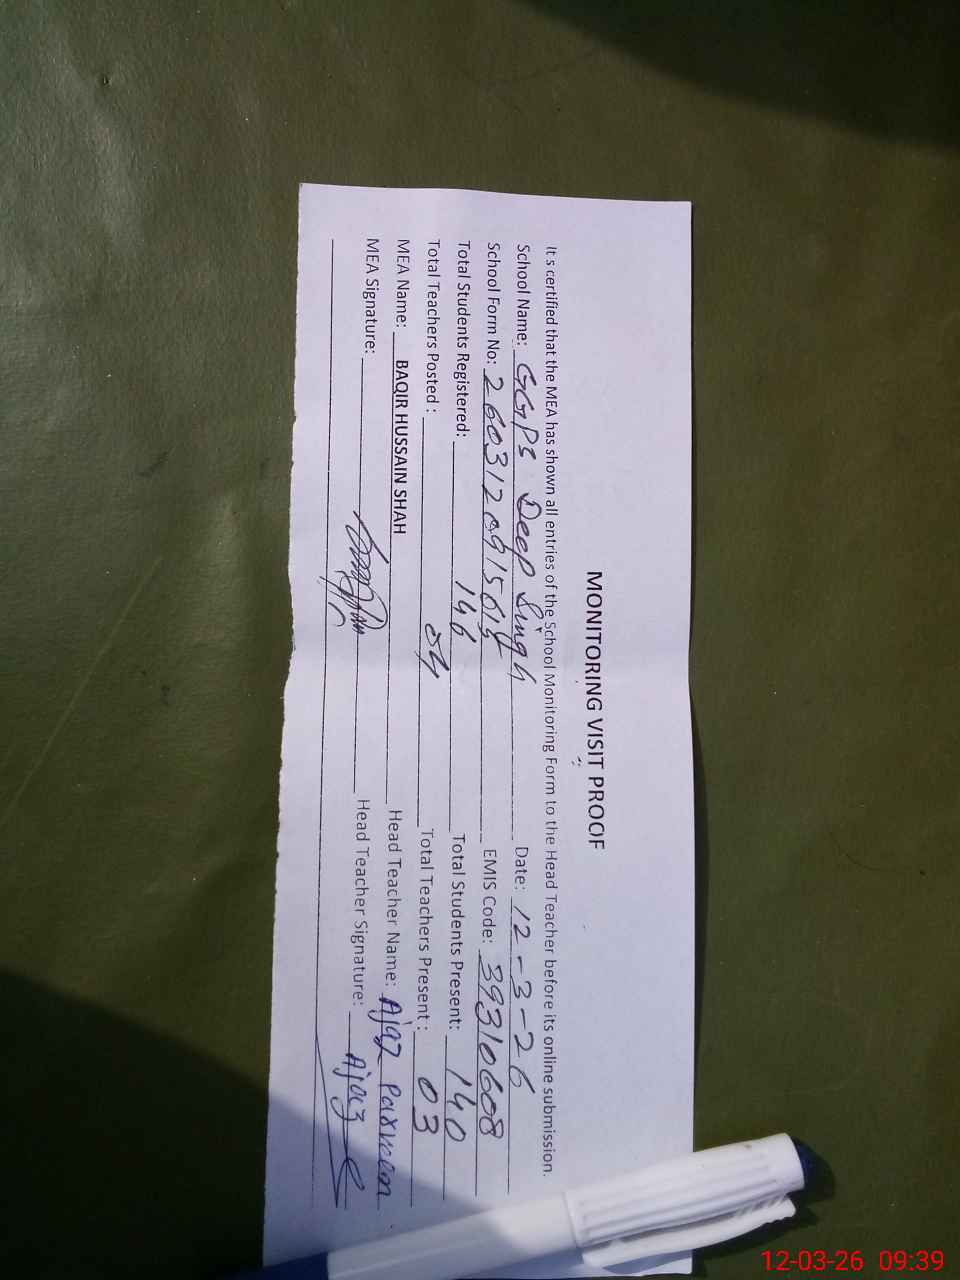 MONITORING VISIT PROOF
It s certified that the MEA has shown all entries of the School Monitoring Form to the Head Teacher before its online submission.
School Name: GGPS Deep Singh Date: 12-3-26
School Form No: EMIS Code: 39310608
Total Students Registered: 146 Total Students Present: 140
Total Teachers Posted : 04 Total Teachers Present : 03
MEA Name: BAQIR HUSSAIN SHAH Head Teacher Name: Ajaz Parveen
MEA Signature: Head Teacher Signature: Ajaz
12-03-26 09:39